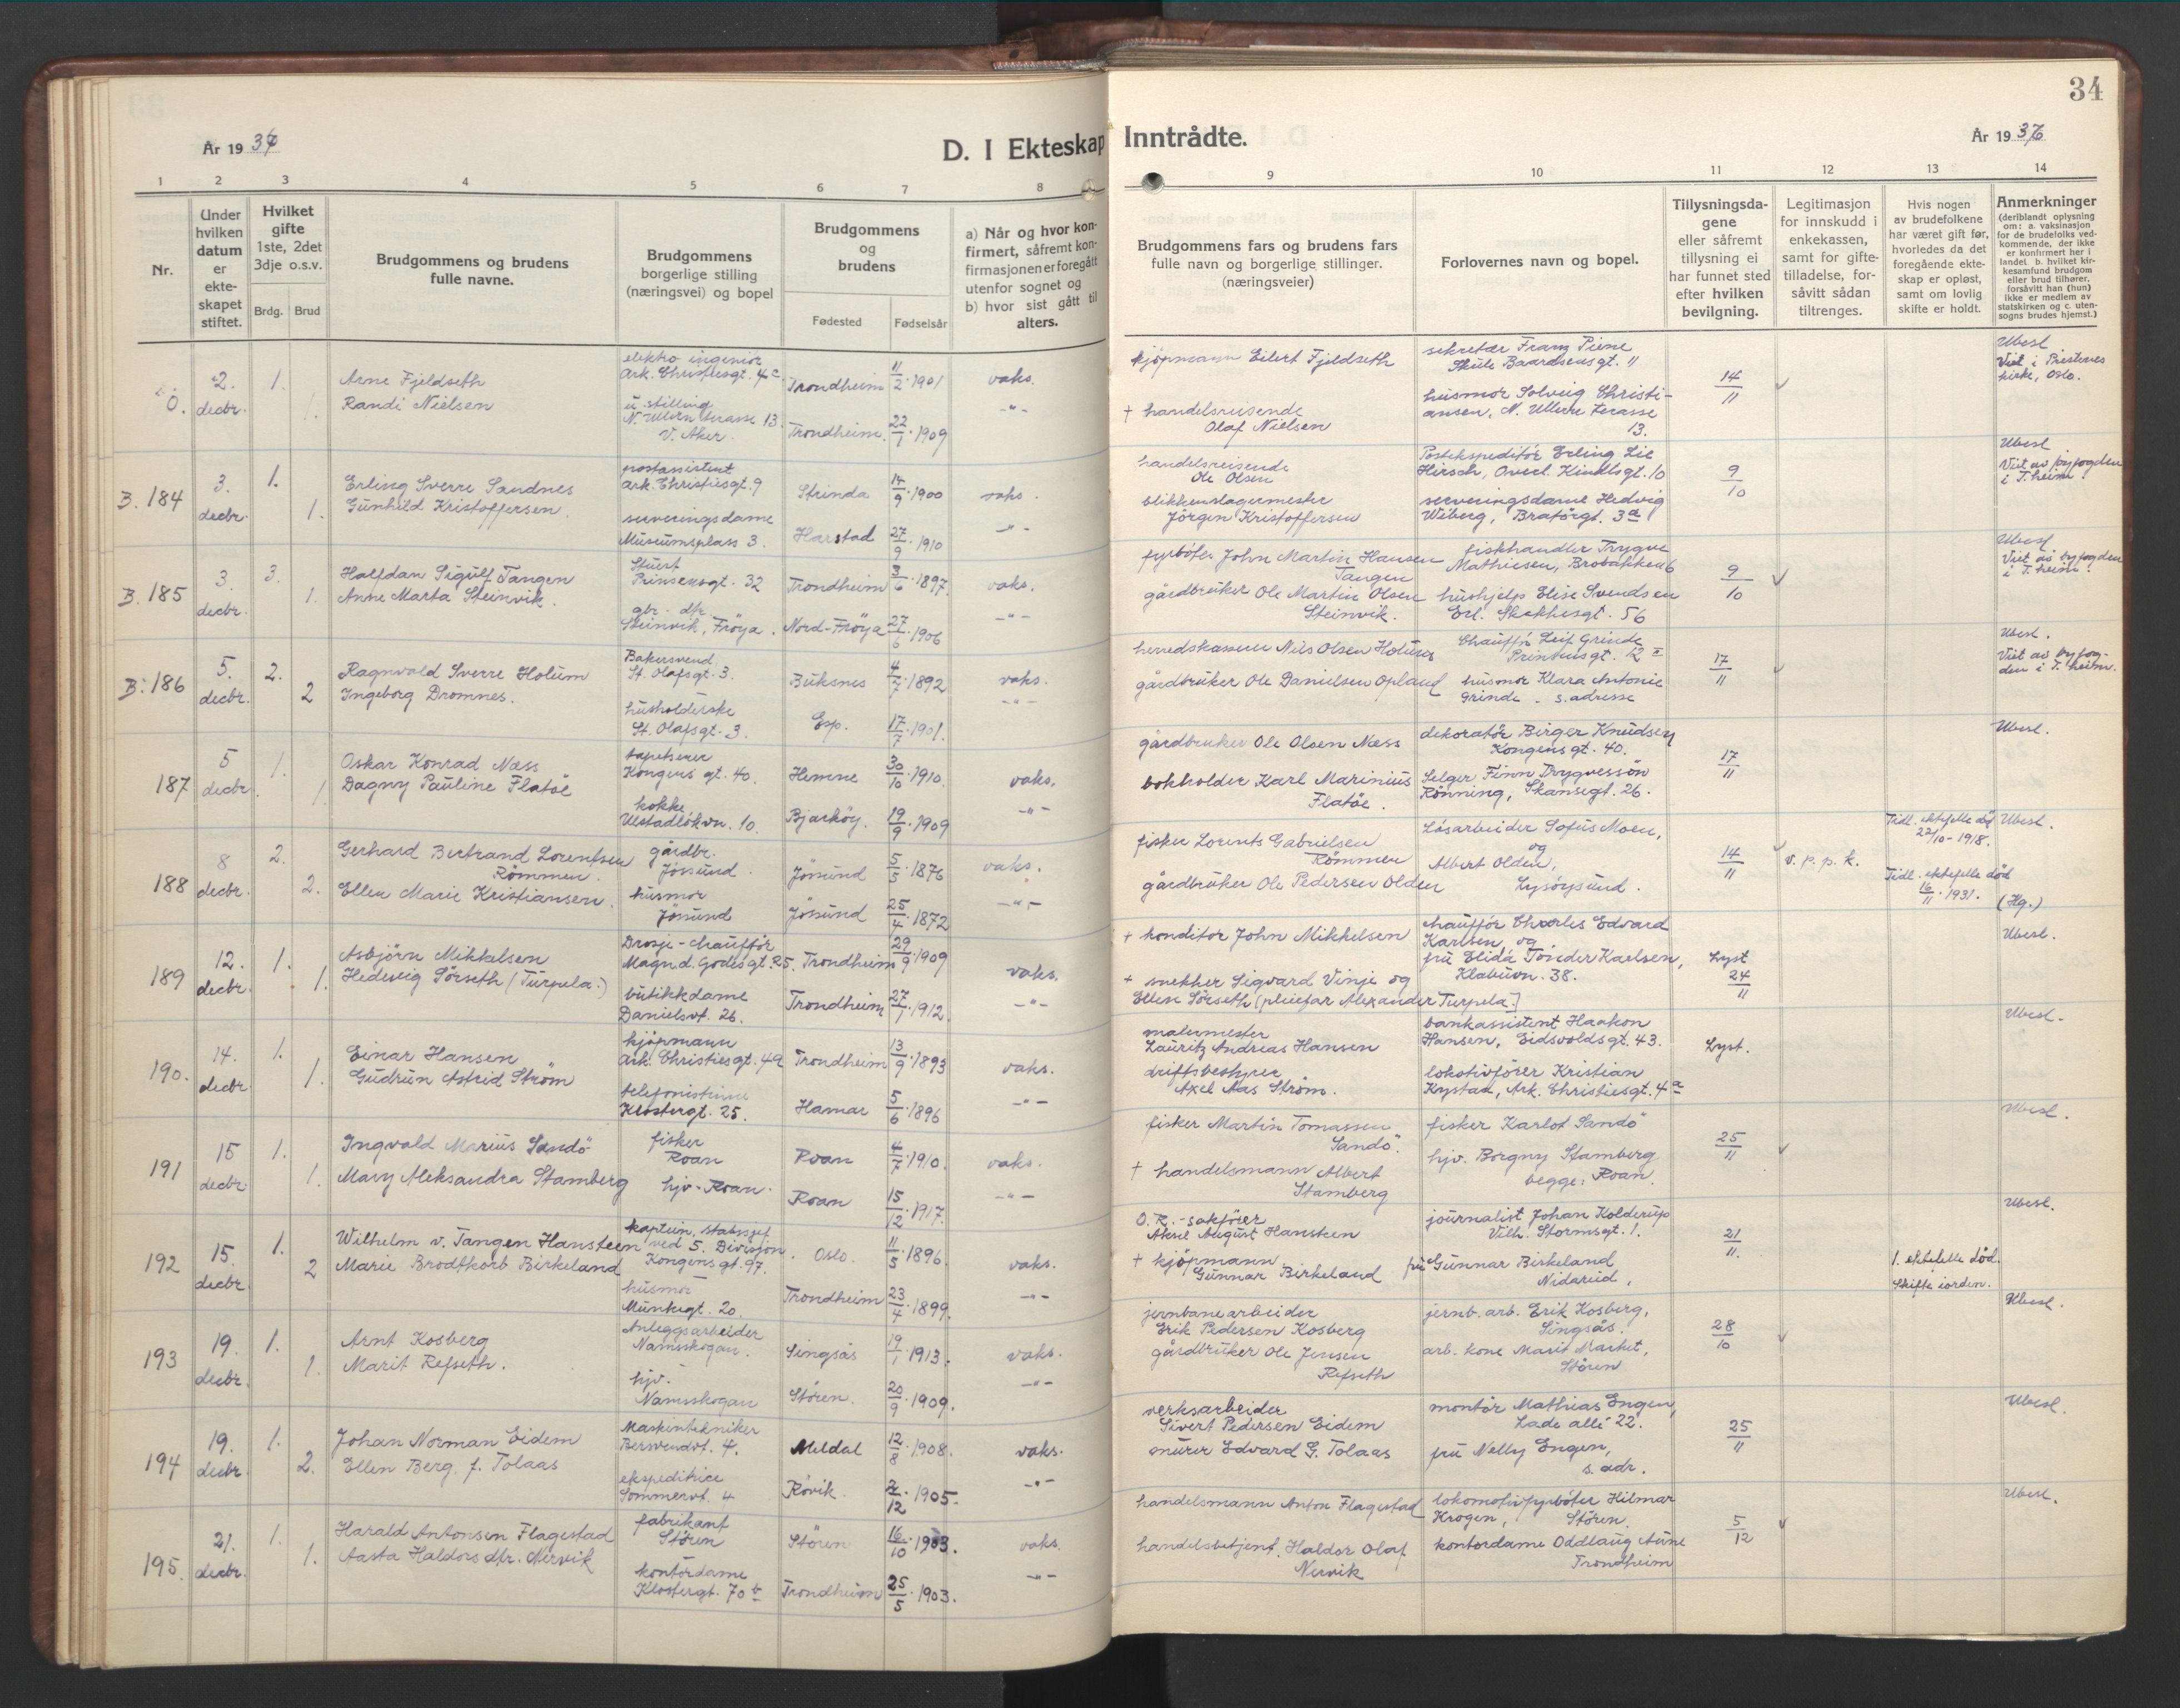 34
År 1936
D. I Ekteskap Inntrådte.
År 1936
1 2 3 4 5 6 7 8 9 10 11 12 13 14
Nr.
Under hvilken datum er ekteskapet stiftet.
Hvilket gifte 1ste, 2det 3dje o.s.v.
Brdg. Brud
Brudgommens og brudens fulle navne.
Brudgommens borgerlige stilling (næringsvei) og bopel
Brudgommens og brudens
Fødested Fødselsår
a) Når og hvor konfirmert, såfremt konfirmasjonen er foregått utenfor sognet og b) hvor sist gått til alters.
Brudgommens fars og brudens fars fulle navn og borgerlige stillinger. (næringsveier)
Forlovernes navn og bopel.
Tillysningsdagene eller såfremt tillysning ei har funnet sted efter hvilken bevilgning.
Legitimasjon for innskudd i enkekassen, samt for giftetilladelse, forsåvitt sådan tiltrenges.
Hvis nogen av brudefolkene har været gift før, hvorledes da det foregående ekteskap er opløst, samt om lovlig skifte er holdt.
Anmerkninger (deriblandt oplysning om: a. vaksinasjon for de brudefolks vedkommende, der ikke er konfirmert her i landet. b. hvilket kirkesamfund brudgom eller brud tilhører, forsåvitt han (hun) ikke er medlem av statskirken og c. utensogns brudes hjemst.)
0. 2. decbr. 1. 1.
Arne Fjeldseth
Randi Nielsen
elektro ingeniør
Ark. Christiesgt. 4c
u. stilling
N. Ullern terasse 13.
V. Aker.
Trondheim 11/2.1901 vaks.
Trondheim. 22/1.1909 -"-
kjøpmann Eilert Fjeldseth
+ handelsreisende
Olaf Nielsen
sekretær Franz Piene
Skule Baardsensgt. 11
husmor Solveig Christiansen, N. Ullern terasse 13.
14/11
Ubesl
Viet i Prestenes kirke, Oslo.
B. 184 3. decbr. 1. 1.
Erling Sverre Sandnes
Gunhild Kristoffersen.
postassistent
Ark. Christiesgt. 9
serveringsdame
Museumsplass 3.
Strinda 14/9.1900 vaks.
Harstad 27/9.1910 -"-
handelsreisende
Ole Olsen
blikkenslagermester
Jørgen Kristoffersen
Postekspeditør Erling Lie
Hirsch, Overl. Kindtsgt. 10
serveringsdame Hedvig
Wiberg, Bratørgt. 3a
9/10
Ubesl
Viet av byfogden i T.heim.
B. 185 3. decbr. 3. 1.
Halfdan Sigulf Tangen
Anne Marta Steinvik.
Stuert
Prinsensgt. 32
gbr. dtr.
Steinvik, Frøya.
Trondheim 3/6.1897. vaks.
Nord-Frøya 27/6.1906 -"-
fyrbøter John Martin Hansen
Tangen
gårdbruker Ole Martin Olsen
Steinvik.
fiskhandler Trygve
Mathiesen, Brobakken 6
hushjelp Elise Svendsen
Erl. Skakkesgt. 56
9/10
Ubesl
Viet av byfogden i T.heim.
B. 186 5. decbr. 2. 2
Ragnvald Sverre Holum
Ingeborg Bromnes.
Bakersvend
St. Olafsgt. 3.
husholderske
St. Olafsgt. 3.
Buksnes 4/7.1892 vaks.
Esp. 17/7.1901. -"-
herredskasserer Nils Olsen Holum
gårdbruker Ole Danielsen Opland
Chauffør Leif Grinde
Prinsensgt. 12 II
husmor Klara Antonie
Grinde - s.adresse
17/11
Ubesl.
Viet av byfogden i T.heim.
187 5 decbr. 1. 1.
Oskar Konrad Næss
Dagny Pauline Flatøe
tapetserer
Kongens gt. 40.
kokke
Ulstadløkvn. 10.
Hemne 30/10.1910. vaks.
Bjarkøy. 19/9.1909 -"-
gårdbruker Ole Olsen Næss
bokholder Karl Marinius
Flatøe.
dekoratør Birger Knudsen
Kongensgt. 40.
Selger Finn Trygvessøn
Rønning, Skansegt. 26.
17/11
Ubesl.
188 8 decbr. 2. 2.
Gerhard Bertrand Lorentsen
Rømmen.
Ellen Marie Kristiansen.
gårdbr.
Jøssund.
husmor
Jøssund
Jøssund 5/5.1876 vaks.
Jøssund 25/4.1872 -"-
fisker Lorents Gabrielsen
Rømmen
gårdbruker Ole Pedersen Olden
Løsarbeider Sofus Moen,
og
Albert Olden,
Lysøysund.
14/11
v. p. p. k.
Tidl. ektefelle død
22/10-1918.
Tidl. ektefelle død
16/11.1931.
Ubesl.
(Hg.)
189 12. decbr. 1. 1.
Asbjørn Mikkalsen
Hedevig Sørseth (Turpela.)
Drosje-chauffør
Magn.d. Godesgt. 25.
butikkdame
Danielsvt. 26.
Trondheim 29/9.1909 vaks.
Trondheim 27/1.1912. -"-
+ konditor John Mikkelsen
+ snekker Sigvard Vinje og
Ellen Sørseth (pleiefar Alexander Turpela.)
chauffør Charles Edvard
Karlsen, og
fru Elida Tønder Karlsen,
Klæbuvn. 38.
Lyst
24/11
Ubesl.
190. 14. decbr. 1. 1.
Einar Hansen
Gudrun Astrid Strøm
kjøpmann
Ark. Christiesgt. 4a
telefonistinne
Klostergt. 25.
Trondheim 13/9.1893 vaks.
Hamar 5/6.1896 -"-
malermester
Lauritz Andreas Hansen
driftsbestyrer
Axel Aas Strøm.
bankassistent Haakon
Hansen, Eidsvoldsgt. 43.
lokotivfører Kristian
Kystad, Ark. Christiesgt. 4a
Lyst.
Ubesl.
191 15 decbr. 1. 1.
Ingvald Marius Sandø
Mary Aleksandra Stamberg
fisker
Roan
hjv. Roan.
Roan 4/7.1910. vaks.
Roan 15/12.1917. -"-
fisker Martin Tomassen
Sandø.
+ handelsmann Albert
Stamberg
fisker Karlot Sandø
hjv. Borgny Stamberg
begge: Roan.
25/11
Ubesl.
192 15. decbr. 1. 2
Wilhelm v. Tangen Hansteen
Marie Brodtkorb Birkeland
kaptein, stabssjef
ved 5. Divisjon.
Kongensgt. 97.
husmor
Munkegt. 20.
Oslo. 11/5.1896. vaks.
Trondheim 23/4.1899. -"-
O.R.-sakfører
Aksel August Hansteen
+ kjøpmann
Gunnar Birkeland
journalist Johan Kolderup
Vilh. Stormsgt. 1.
fru Gunnar Birkeland
Nidareid,
21/11.
1. ektefelle død.
Skifte iorden.
Ubesl.
193 19. decbr. 1. 1.
Arnt Kosberg
Marit Refseth.
Anleggsarbeider
Namsskogan.
hjv.
Namsskogan
Singsås 19/1.1913. vaks.
Støren. 20/9.1909. -"-
jernbanearbeider
Erik Pedersen Kosberg
gårdbruker Ole Jensen
Refseth
jernb. arb. Erik Kosberg,
Singsås.
arb. kone Marit Market,
Støren
28/10
Ubesl.
194 19. decbr. 1. 2.
Johan Norman Eidem
Ellen Berg. f. Tolaas
Maskintekniker
Bersvendvt. 4.
ekspeditrice
Sommervt. 4
Meldal 12/8.1908. vaks.
Røvik. 2/12.1905. -"-
verksarbeider
Sivert Pedersen Eidem
murer Edvard G. Tolaas
montør Mathias Engen,
Lade allé 22.
fru Nelly Engen,
s. adr.
25/11
Ubesl.
195. 21. decbr. 1. 1.
Harald Antonsen Flagestad
Aasta Haldors dtr. Nervik
fabrikant
Støren
kontordame
Klostergt. 70b
Støren 16/10.1903. vaks.
Trondheim 25/5.1903. -"-
handelsmann Anton Flagestad
handelsbetjent Haldor Olaf
Nervik
lokomotivfyrbøter Hilmar
Krogen, Støren.
kontordame Oddlaug Aune
Trondheim
5/12
Ubesl.